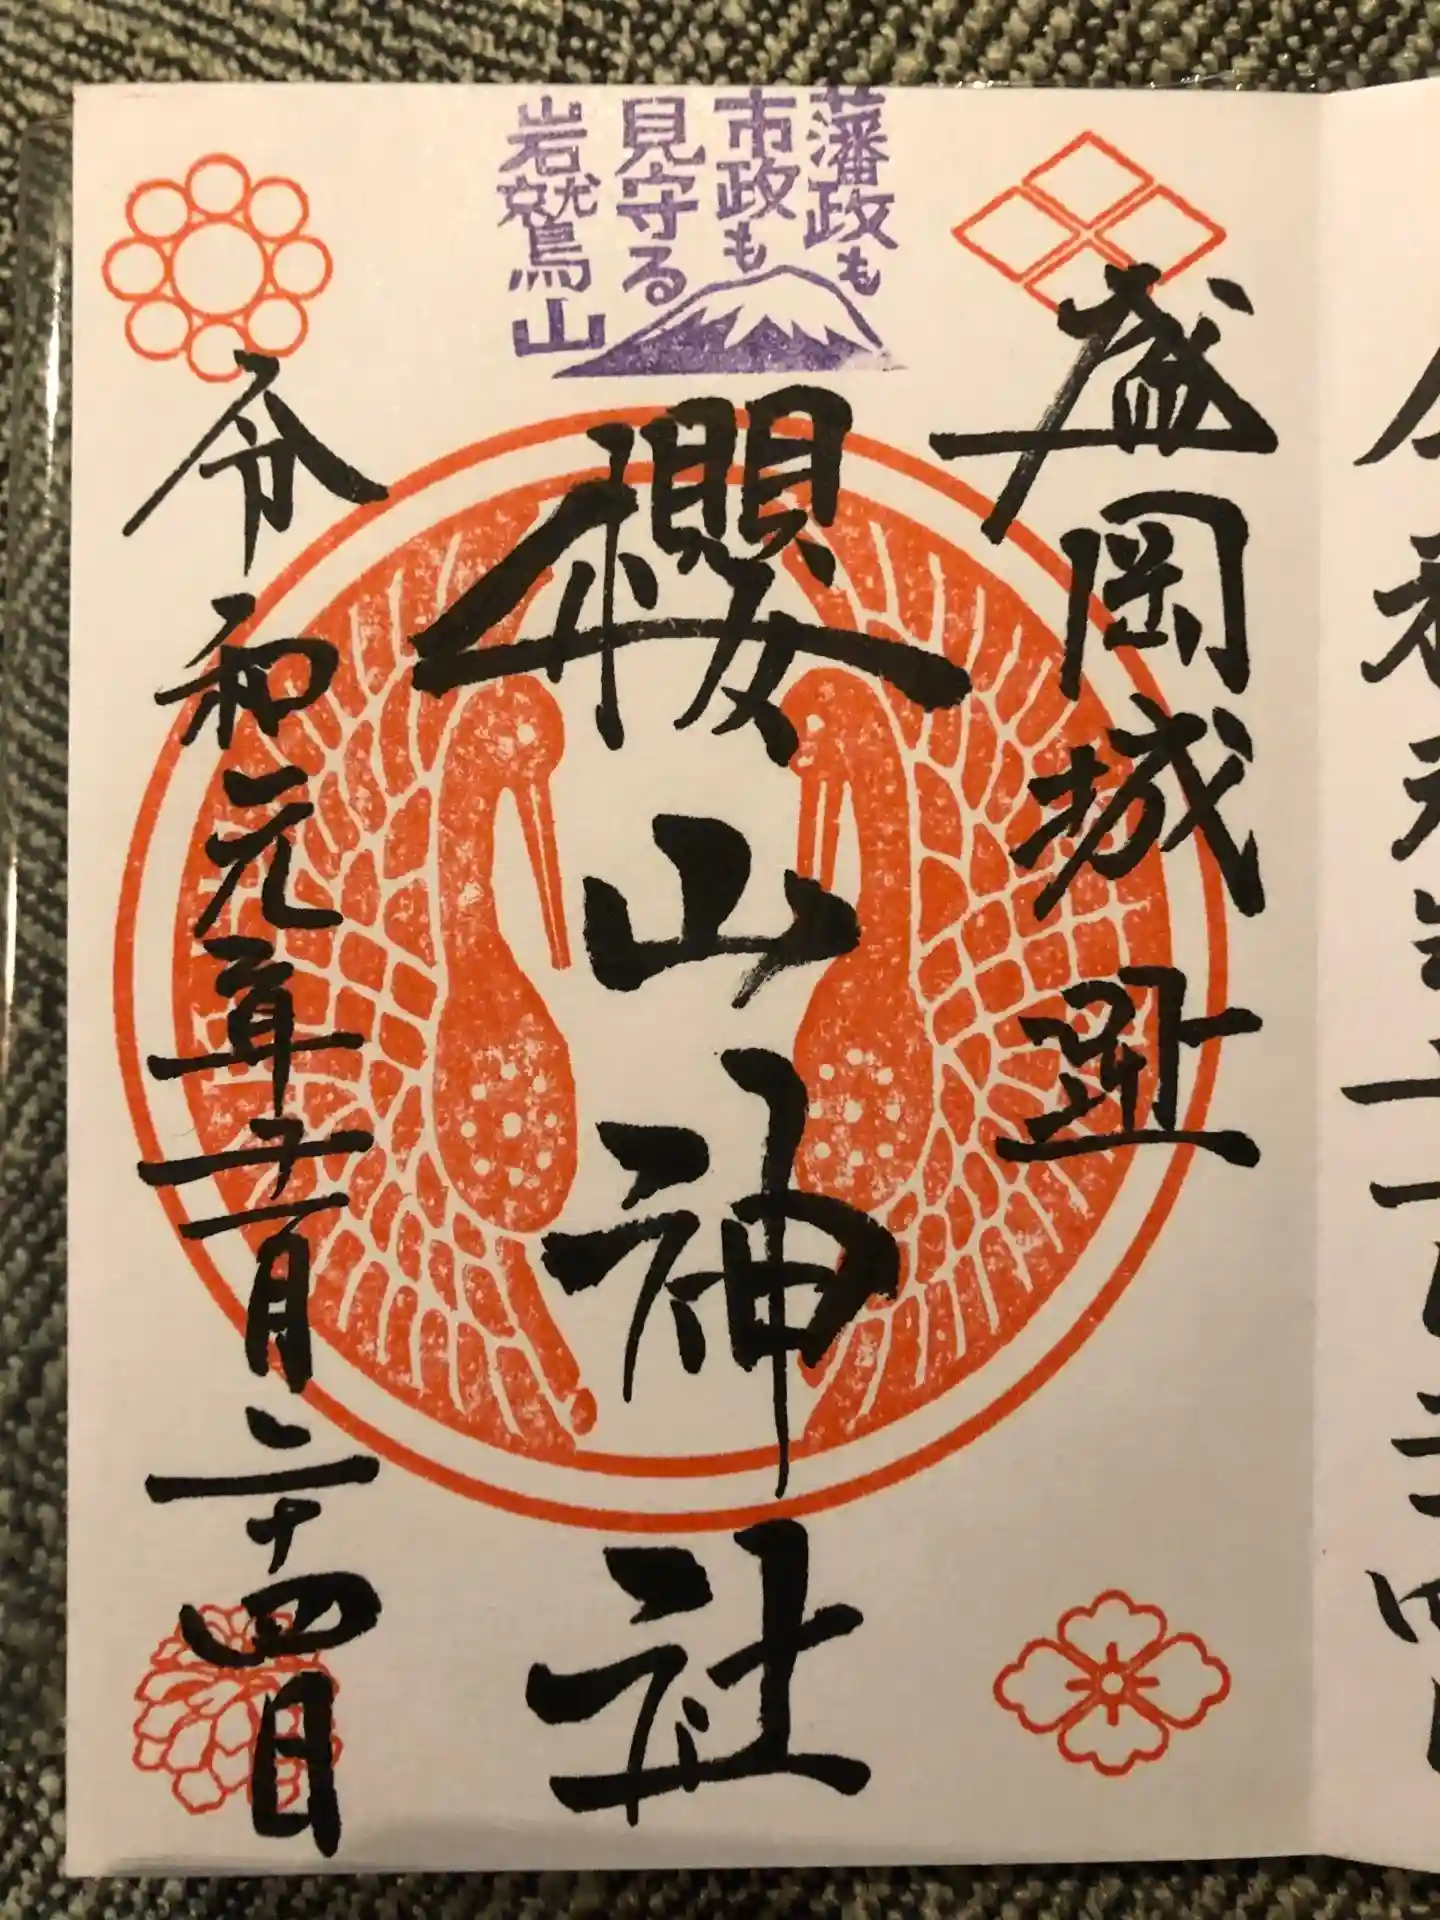 藩政も
市政も
見守る
岩鷲山
盛岡城趾
櫻山神社
令和元年十一月二十四日